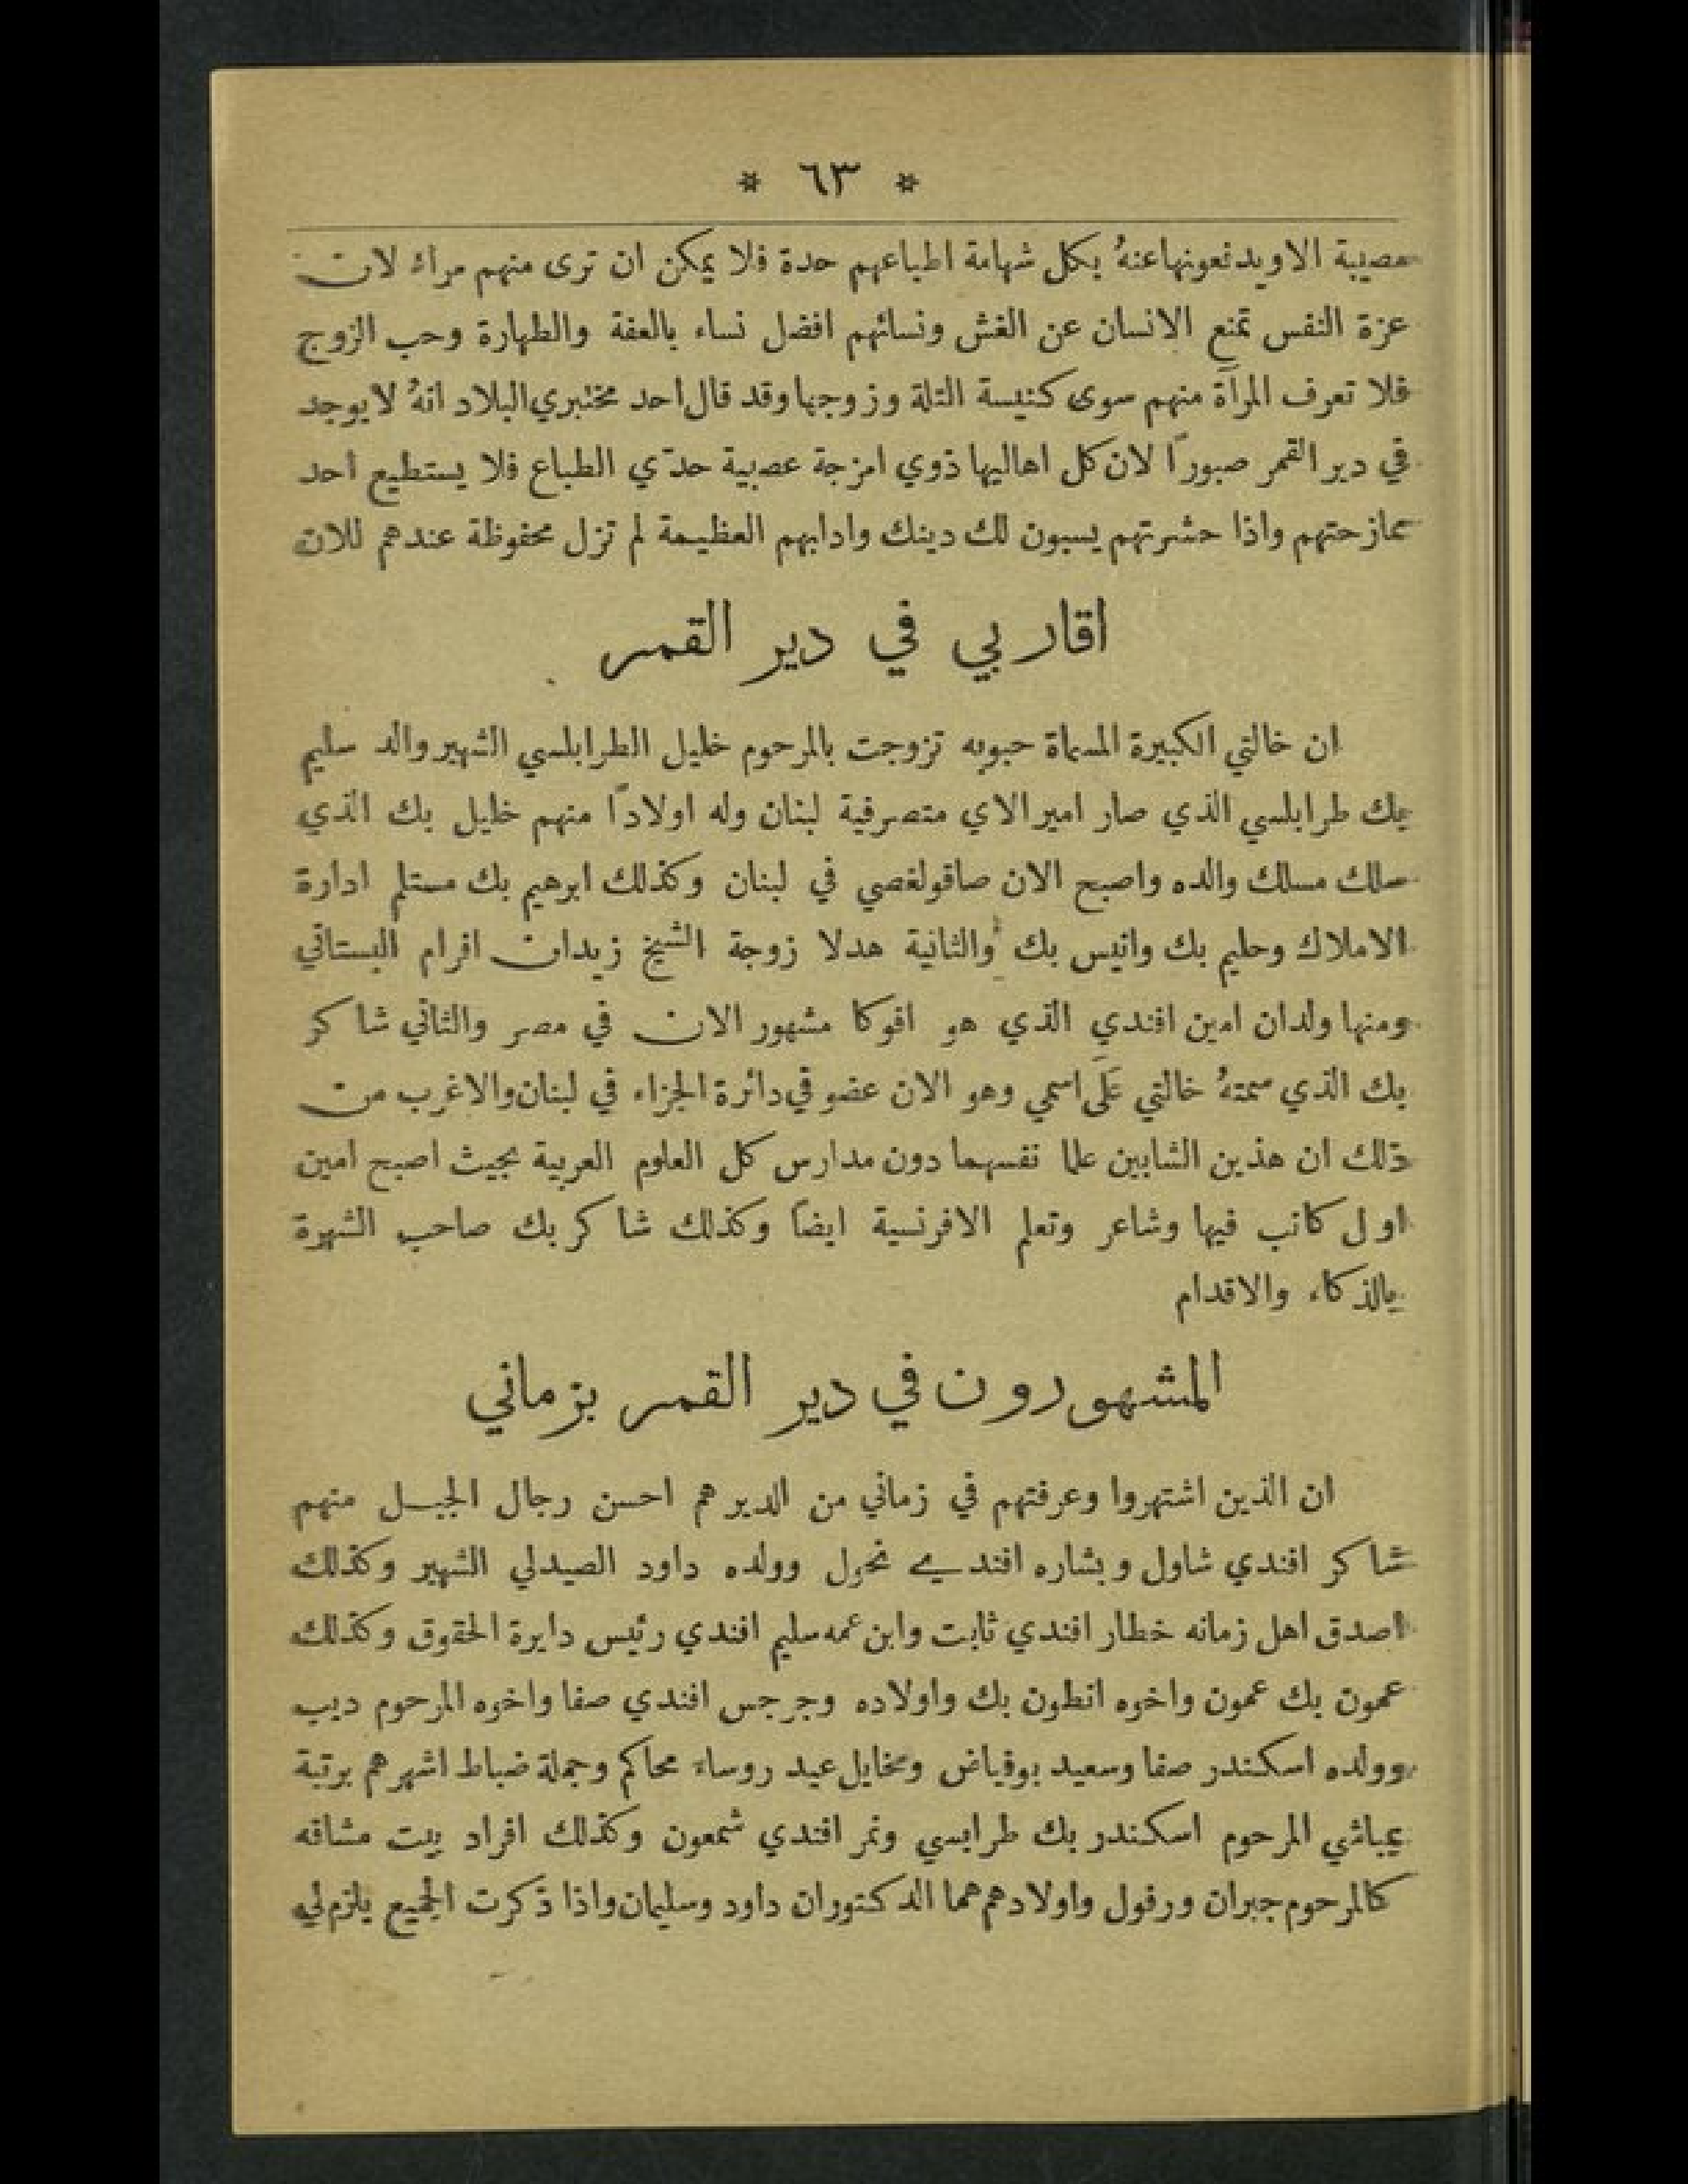 * ٦٣ *
مصيبة الا ويدفعونها عنهُ بكل شهامة اطباعهم حدة فلا يمكن ان ترى منهم مراء لان
عزة النفس تمنع الانسان عن الغش ونسائهم افضل نساء بالعفة والطهارة وحب الزوج
فلا تعرف المرآة منهم سوى كنيسة التلة وزوجها وقد قال احد مختبري البلاد انهُ لا يوجد
في دير القمر صبورًا لان كل اهاليها ذوي امزجة عصبية حدّي الطباع فلا يستطيع احد
ممازحتهم واذا حشرتهم يسبون لك دينك وادابهم العظيمة لم تزل محفوظة عندهم للان
اقاربي في دير القمر
ان خالتي الكبيرة المسماة حبوبه تزوجت بالمرحوم خليل الطرابلسي الشهير والد سليم
بك طرابلسي الذي صار امير الاي متصرفية لبنان وله اولادًا منهم خليل بك الذي
سلك مسلك والده واصبح الان صاقولغصي في لبنان وكذلك ابرهيم بك مستلم ادارة
الاملاك وحليم بك وانيس بك والثانية هدلا زوجة الشيخ زيدان افرام البستاني
ومنها ولدان امين افندي الذي هو افوكا مشهور الان في مصر والثاني شاكر
بك الذي سمتهُ خالتي عَلَى اسمي وهو الان عضو في دائرة الجزاء في لبنان والاغرب من
ذلك ان هذين الشابين علما نفسهما دون مدارس كل العلوم العربية بحيث اصبح امين
اول كاتب فيها وشاعر وتعلم الافرنسية ايضًا وكذلك شاكر بك صاحب الشهرة
بالذكاء والاقدام
المشهورون في دير القمر بزماني
ان الذين اشتهروا وعرفتهم في زماني من الدير هم احسن رجال الجبل منهم
شاكر افندي شاول وبشاره افندي نحول وولده داود الصيدلي الشهير وكذلك
اصدق اهل زمانه خطار افندي ثابت وابن عمه سليم افندي رئيس دايرة الحقوق وكذلك
عمون بك عمون واخوه انطون بك واولاده وجرجس افندي صفا واخوه المرحوم ديب
وولده اسكندر صفا وسعيد بوفياض ومخايل عيد روساء محاكم وجملة ضباط اشهرهم برتبة
يمباشي المرحوم اسكندر بك طرابسي ونمر افندي شمعون وكذلك افراد بيت مشاقه
كالمرحوم جبران ورفول واولادهم هما الدكتوران داود وسليمان واذا ذكرت الجميع يلزم لي